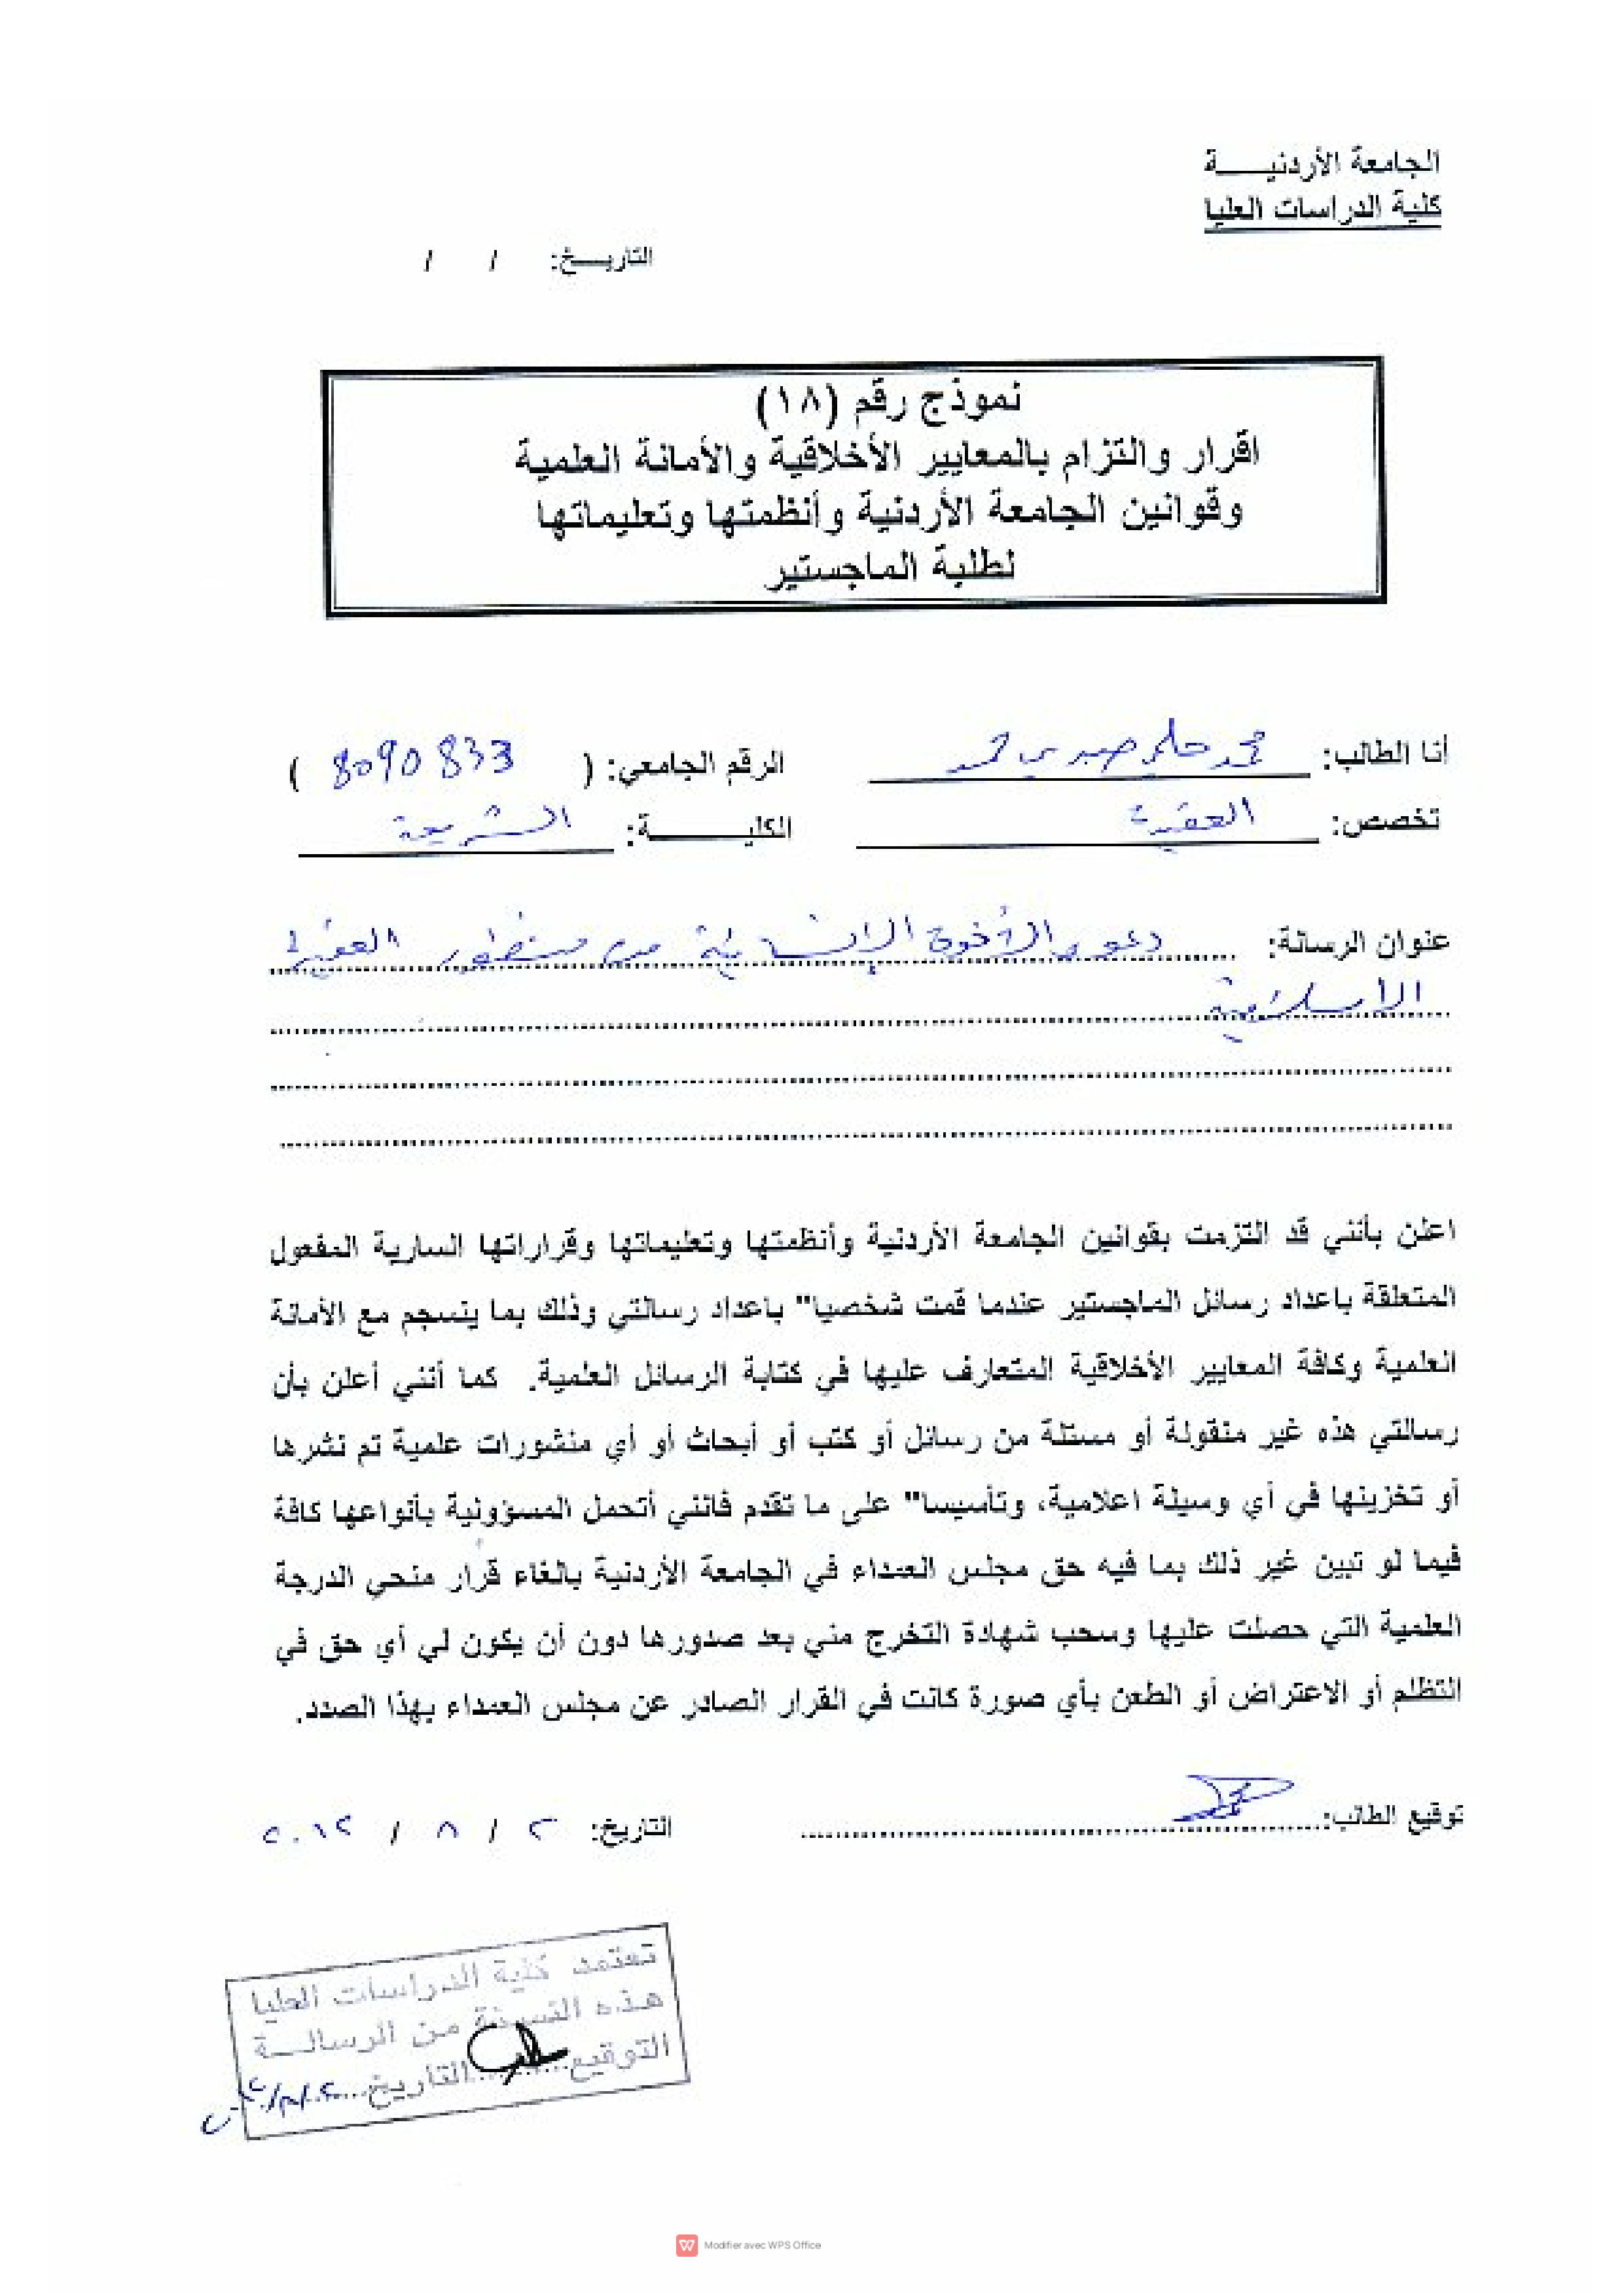 الجامعة الأردنيـــــة
كلية الدراسات العليا
التاريـــخ: / /
نموذج رقم (١٨)
اقرار والتزام بالمعايير الأخلاقية والأمانة العلمية
وقوانين الجامعة الأردنية وأنظمتها وتعليماتها
لطلبة الماجستير
أنا الطالب: محمد حلمي صبري محمد الرقم الجامعي: ( 8090833 )
تخصص: العقيدة الكليـــــــة: الشريعة
عنوان الرسالة: دعوى الأخوة الإنسانية من منظور العقيدة
الإسلامية
اعلن بأنني قد التزمت بقوانين الجامعة الأردنية وأنظمتها وتعليماتها وقراراتها السارية المفعول
المتعلقة باعداد رسائل الماجستير عندما قمت شخصيا" باعداد رسالتي وذلك بما ينسجم مع الأمانة
العلمية وكافة المعايير الأخلاقية المتعارف عليها في كتابة الرسائل العلمية. كما أنني أعلن بأن
رسالتي هذه غير منقولة أو مستلة من رسائل أو كتب أو أبحاث أو أي منشورات علمية تم نشرها
أو تخزينها في أي وسيلة اعلامية، وتأسيسا" على ما تقدم فانني أتحمل المسؤولية بأنواعها كافة
فيما لو تبين غير ذلك بما فيه حق مجلس العمداء في الجامعة الأردنية بالغاء قرار منحي الدرجة
العلمية التي حصلت عليها وسحب شهادة التخرج مني بعد صدورها دون أن يكون لي أي حق في
التظلم أو الاعتراض أو الطعن بأي صورة كانت في القرار الصادر عن مجلس العمداء بهذا الصدد.
توقيع الطالب: التاريخ: ٢ / ٨ / ٢٠١٢
تعتمد كلية الدراسات العليا
هذه النسخة من الرسالــة
التوقيع.......... التاريخ....
Modifier avec WPS Office